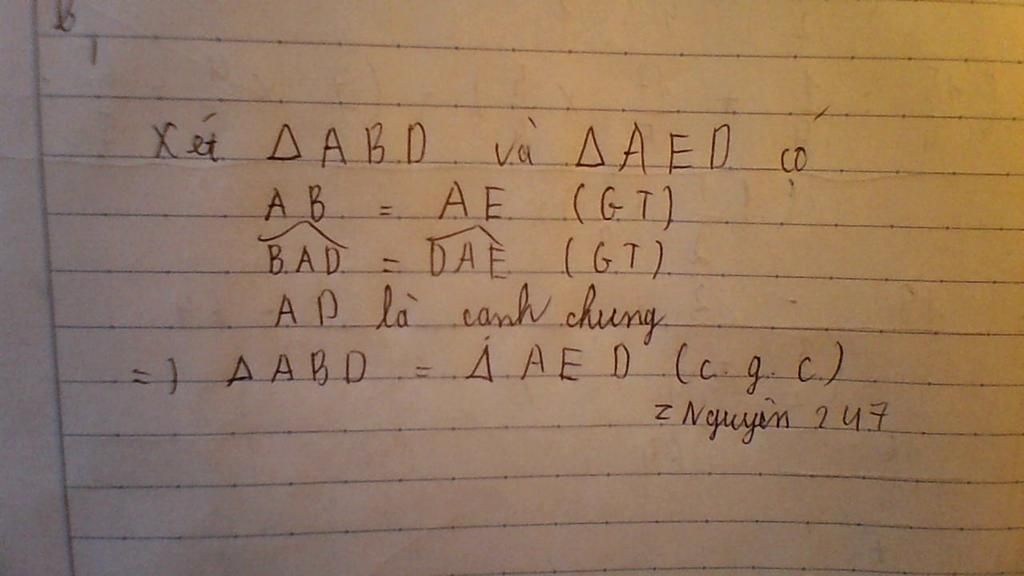 b
Xét Δ ABD và Δ AED có
AB = AE (GT)
BAD = DAE (GT)
AD là cạnh chung
=) Δ ABD = Δ AED (c.g.c)
= Nguyên 247